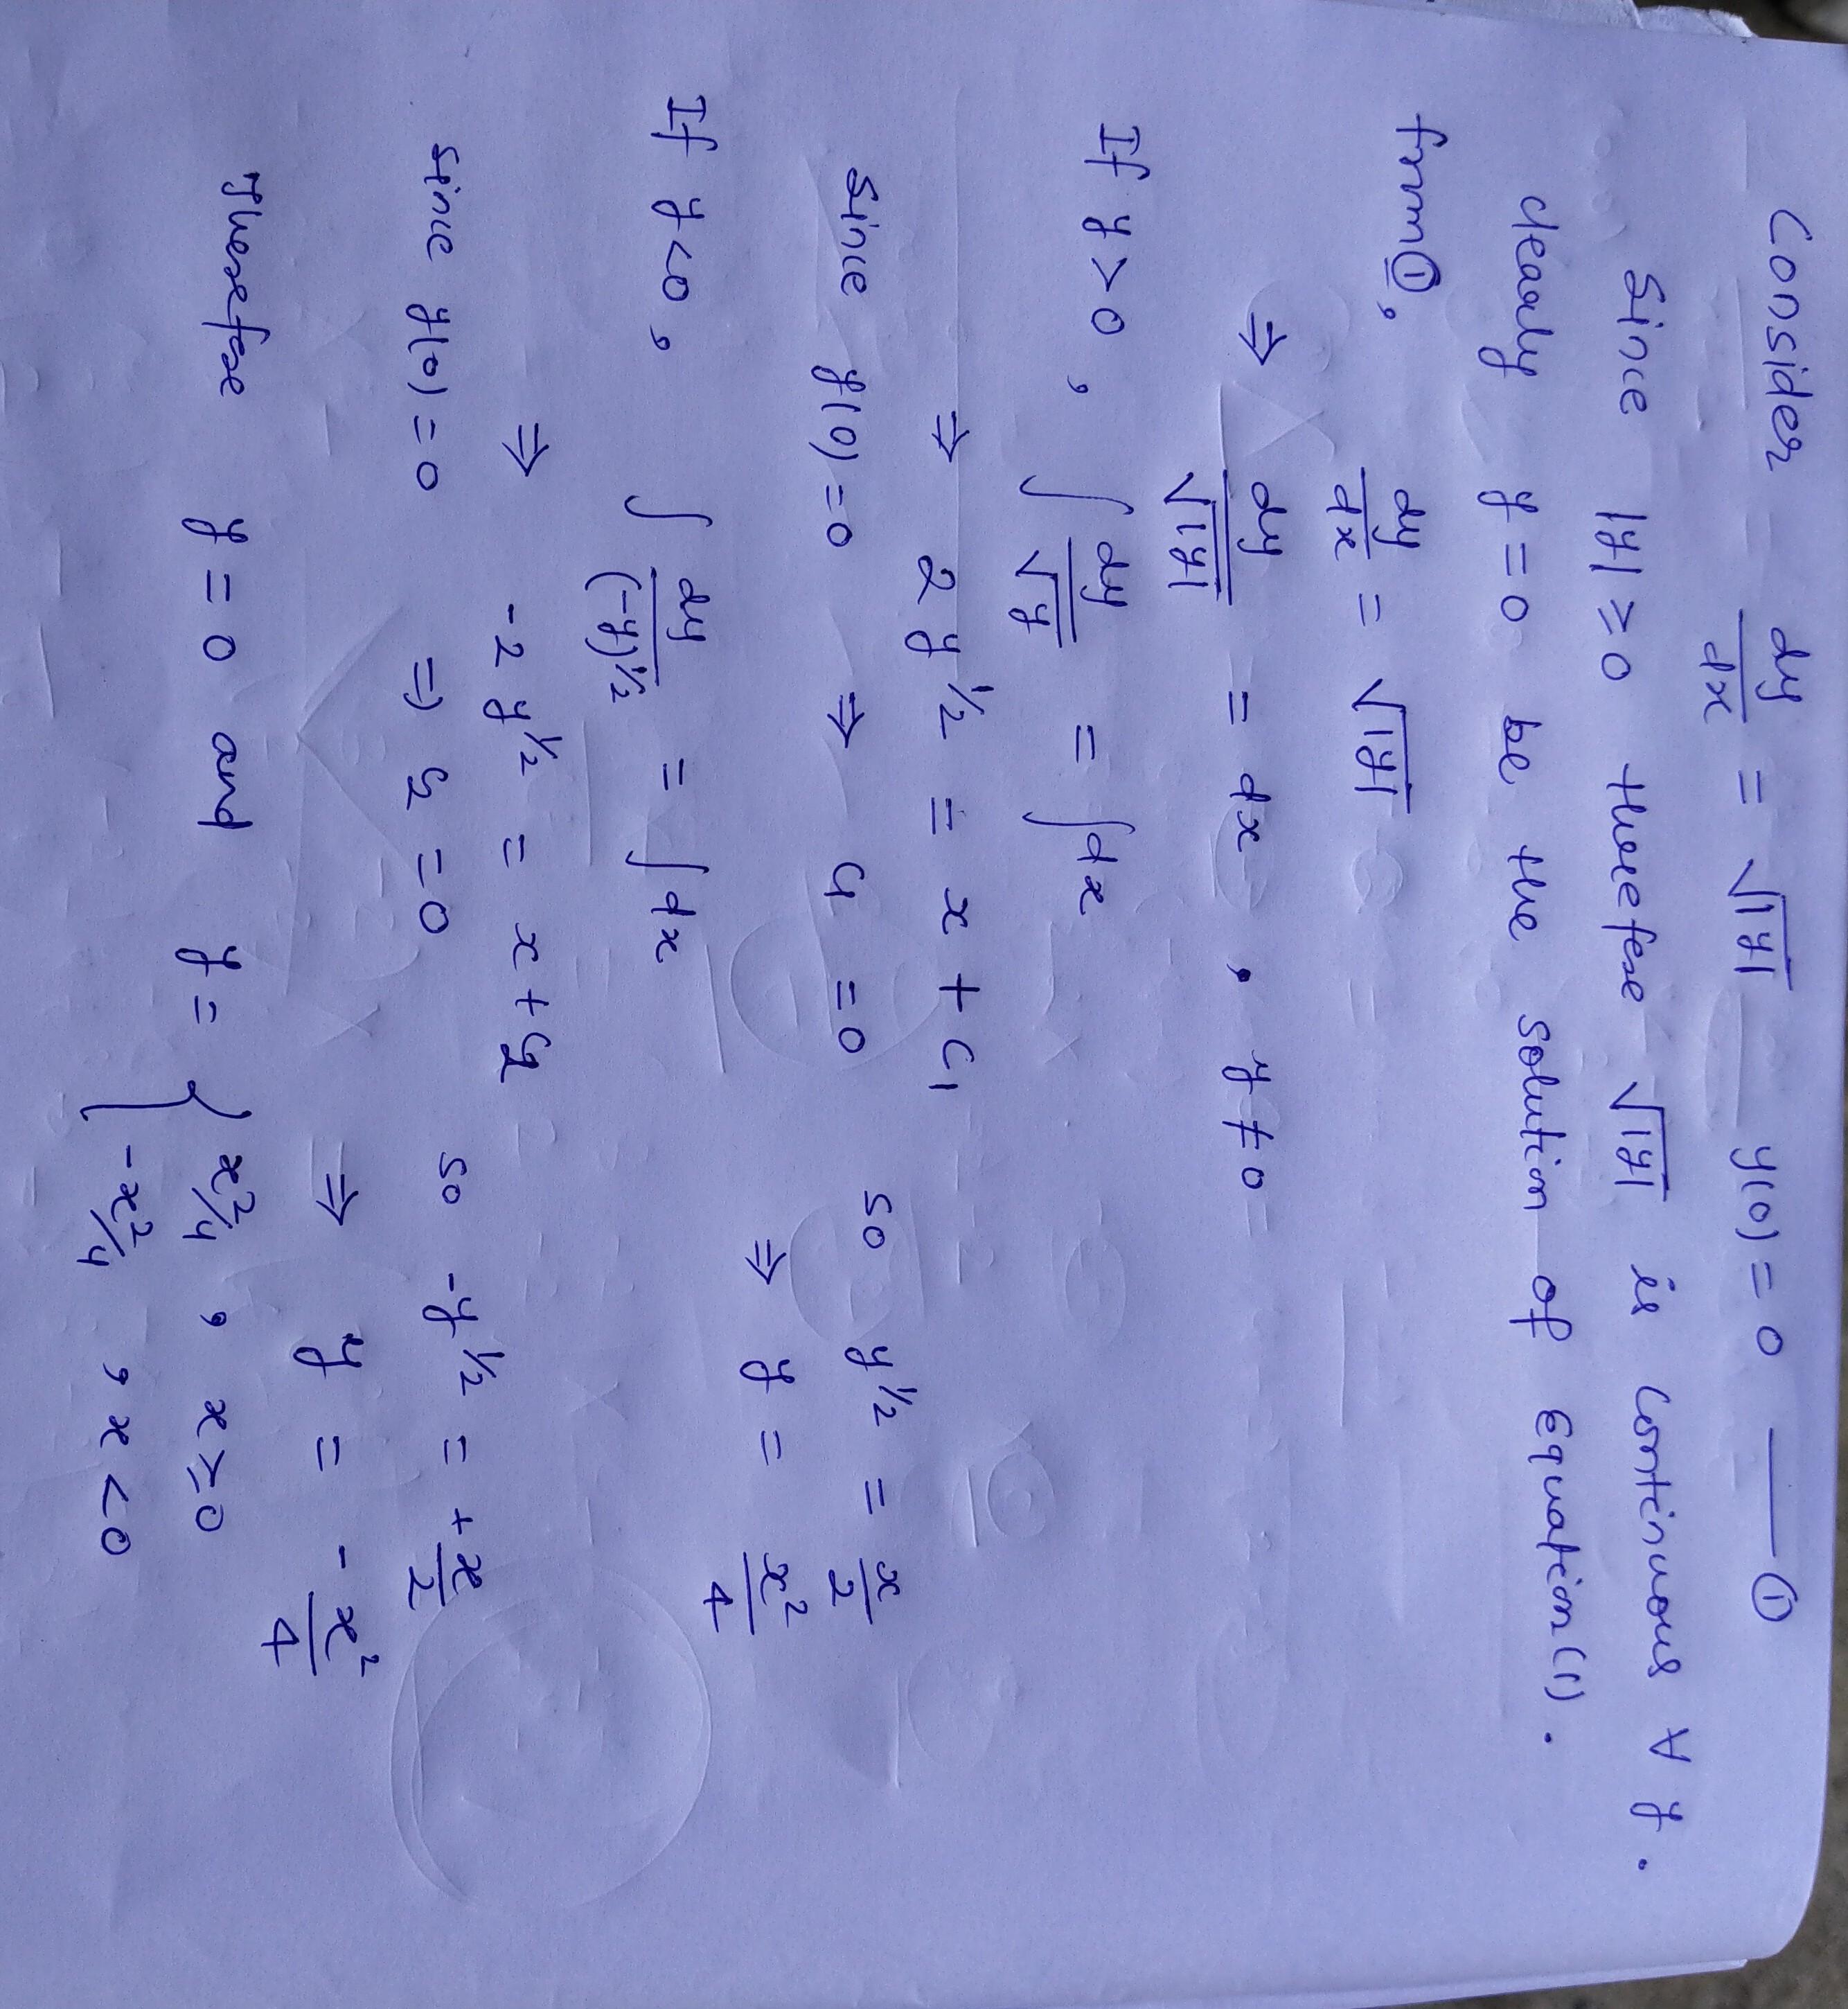 Consider dy/dx = √|y| y(0) = 0 —— ①
Since |y| ≥ 0 therefore √|y| is continuous ∀ y.
clearly y = 0 be the solution of Equation(1).
from ①, dy/dx = √|y|
⇒ dy/√|y| = dx, y ≠ 0
If y > 0, ∫ dy/√y = ∫ dx
⇒ 2 y^1/2 = x + c₁
Since y(0) = 0 ⇒ c₁ = 0 so y^1/2 = x/2
⇒ y = x²/4
If y < 0, ∫ dy/(-y)^1/2 = ∫ dx
⇒ -2 y^1/2 = x + c₂
Since y(0) = 0 ⇒ c₂ = 0 so -y^1/2 = +x/2
⇒ y = -x²/4
Therefore y = 0 and y = { x²/4, x ≥ 0
-x²/4, x < 0